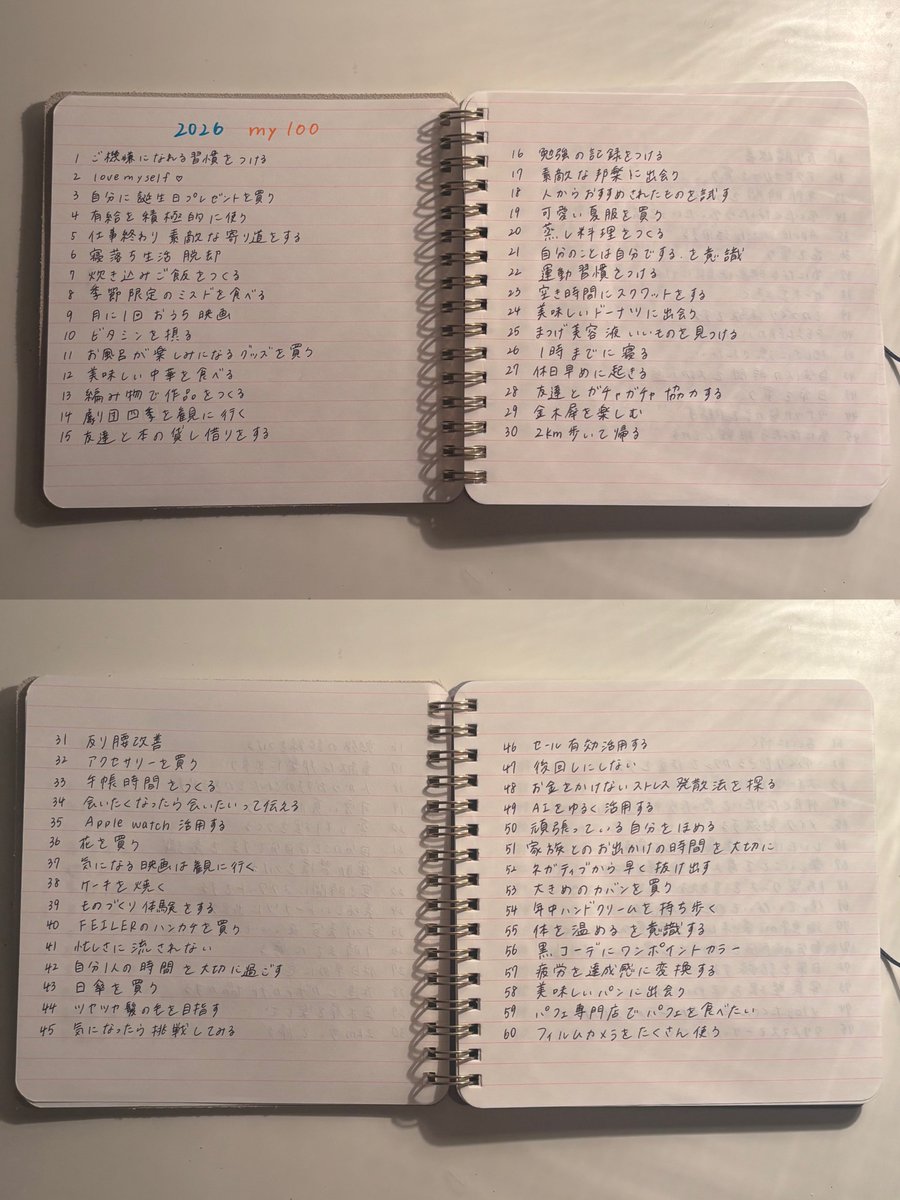 2026 my 100
1 ご機嫌になれる習慣をつける
2 love myself♡
3 自分に誕生日プレゼントを買う
4 有給を積極的に使う
5 仕事終わり 素敵な寄り道をする
6 寝落ち生活 脱却
7 炊き込みご飯をつくる
8 季節限定のミスドを食べる
9 月に1回 おうち映画
10 ビタミンを摂る
11 お風呂が楽しみになるグッズを買う
12 美味しい中華を食べる
13 編み物で作品をつくる
14 劇団四季を観に行く
15 友達と本の貸し借りをする
16 勉強の記録をつける
17 素敵な邦楽に出会う
18 人からおすすめされたものを試す
19 可愛い夏服を買う
20 蒸し料理をつくる
21 自分のことは自分でする.を意識
22 運動習慣をつける
23 空き時間にスクワットをする
24 美味しいドーナツに出会う
25 まつげ美容液 いいものを見つける
26 1時までに寝る
27 休日早めに起きる
28 友達とガチャガチャ協力する
29 金木犀を楽しむ
30 2km歩いて帰る
31 反り腰改善
32 アクセサリーを買う
33 手帳時間をつくる
34 会いたくなったら会いたいって伝える
35 Apple watch 活用する
36 花を買う
37 気になる映画は観に行く
38 ケーキを焼く
39 ものづくり体験をする
40 FEILERのハンカチを買う
41 忙しさに流されない
42 自分1人の時間を大切に過ごす
43 日傘を買う
44 ツヤツヤ髪の毛を目指す
45 気になったら挑戦してみる
46 セール有効活用する
47 後回しにしない
48 お金をかけないストレス発散法を探る
49 AIをゆるく活用する
50 頑張っている自分をほめる
51 家族とのお出かけの時間を大切に
52 ネガティブから早く抜け出す
53 大きめのカバンを買う
54 年中ハンドクリームを持ち歩く
55 体を温めるを意識する
56 黒コーデにワンポイントカラー
57 疲労を達成感に変換する
58 美味しいパンに出会う
59 パフェ専門店でパフェを食べたい
60 フィルムカメラをたくさん使う